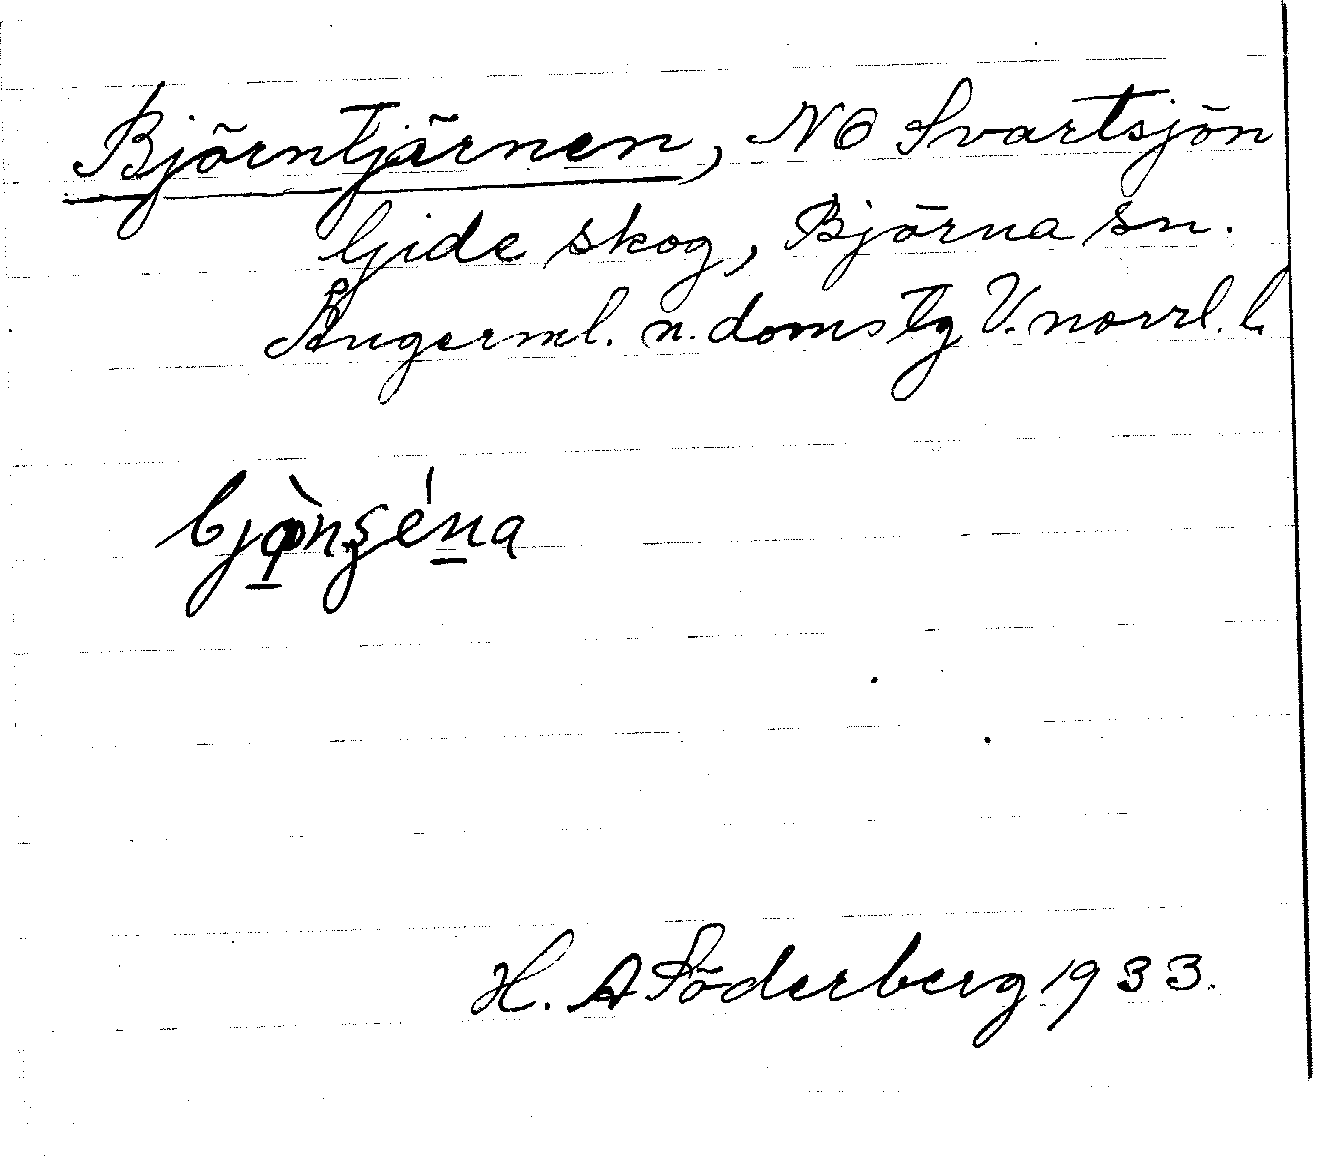 Björntjärnen, NO Svartsjön
Gide skog, Björna sn.
Ångerml. n. domstg V. norrl. l.
H. A Söderberg 1933.